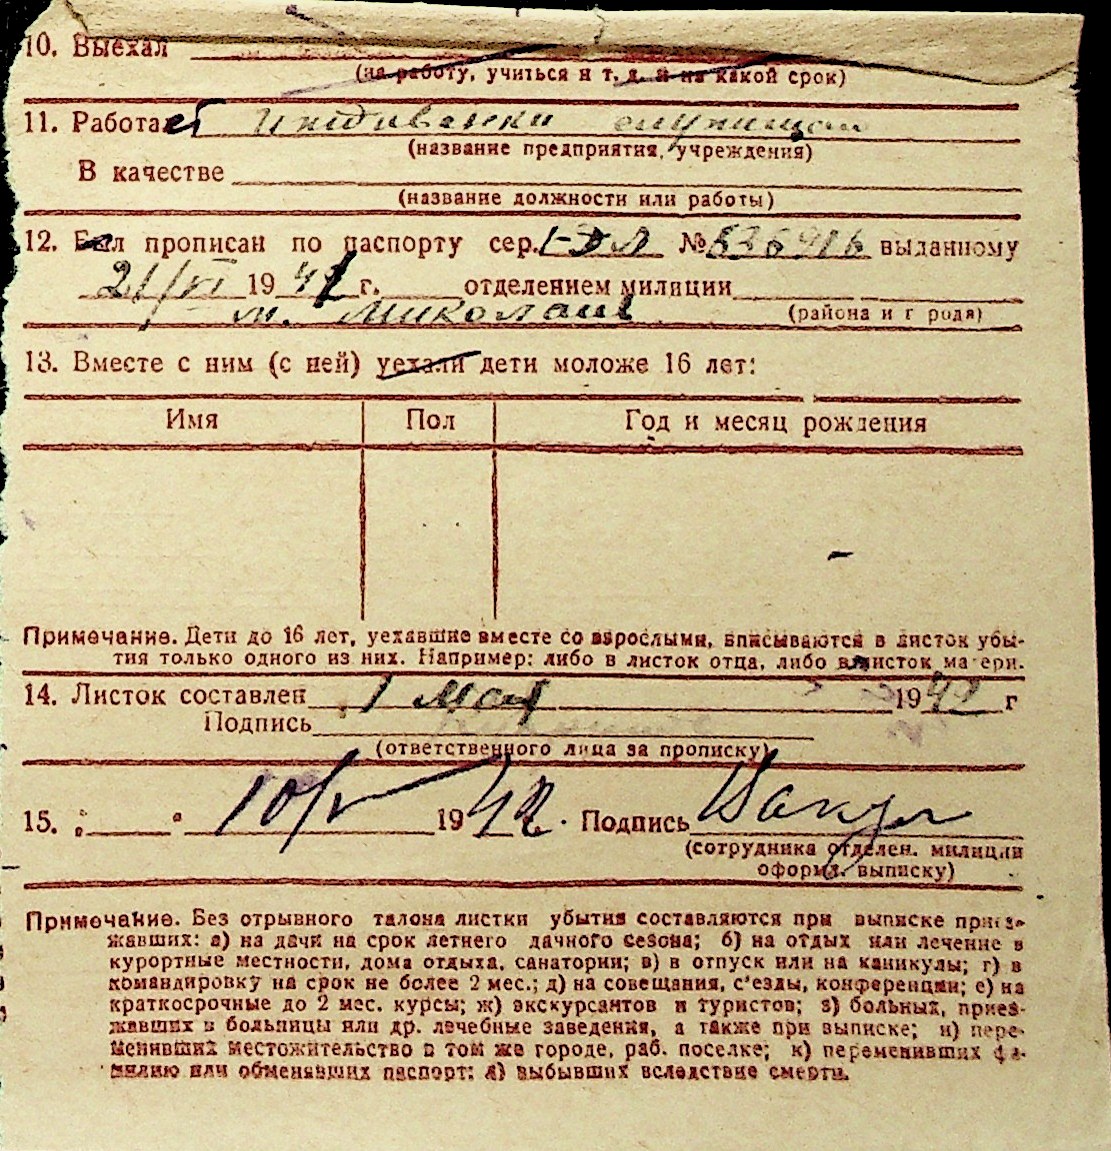 10. Выехал
(на работу, учиться и т. д. и на какой срок)
11. Работает
(название предприятия, учреждения)
В качестве
(название должности или работы)
12. Был прописан по паспорту сер. № выданному
21/VI 19 г. отделением милиции
(района и города)
13. Вместе с ним (с ней) уехали дети моложе 16 лет:
Имя Пол Год и месяц рождения
Примечание. Дети до 16 лет, уехавшие вместе со взрослыми, вписываются в листок убы-
тия только одного из них. Например: либо в листок отца, либо в листок матери.
14. Листок составлен 1 мая 19 г
Подпись
(ответственного лица за прописку)
15. „ “ 10/V 1942. Подпись
(сотрудника отделен. милиции
оформл. выписку)
Примечание. Без отрывного талона листки убытия составляются при выписке приез-
жавших: а) на дачи на срок летнего дачного сезона; б) на отдых или лечение в
курортные местности, дома отдыха, санатории; в) в отпуск или на каникулы; г) в
командировку на срок не более 2 мес.; д) на совещания, с'езды, конференции; е) на
краткосрочные до 2 мес. курсы; ж) экскурсантов и туристов; з) больных, приез-
жавших в больницы или др. лечебные заведения, а также при выписке; и) пере-
менивших местожительство в том же городе, раб. поселке; к) переменивших фа-
милию или обменявших паспорт; л) выбывших вследствие смерти.